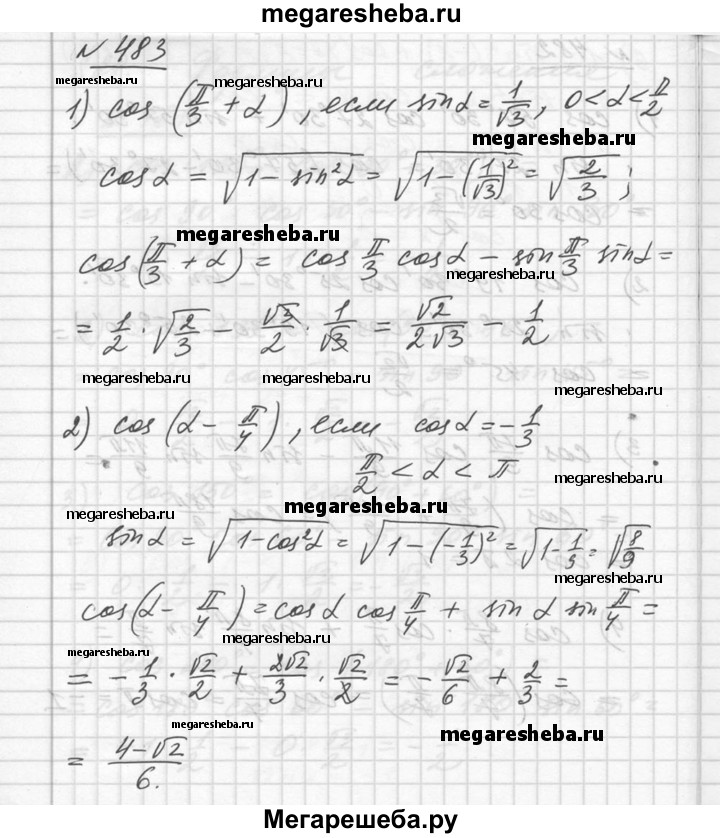 megaresheba.ru
N 483
megaresheba.ru
megaresheba.ru
1) cos (π/3 + α), если sinα = 1/√3, 0 < α < π/2
megaresheba.ru
cosα = √(1 - sin²α) = √(1 - (1/√3)²) = √(2/3) ;
megaresheba.ru
cos(π/3 + α) = cos π/3 cosα - sin π/3 sinα =
megaresheba.ru
= 1/2 · √(2/3) - √3/2 · 1/√3 = √2/2√3 - 1/2
megaresheba.ru
megaresheba.ru
megaresheba.ru
2) cos (α - π/4), если cosα = -1/3
π/2 < α < π
megaresheba.ru
megaresheba.ru
megaresheba.ru
sinα = √(1-cos²α) = √(1-(-1/3)²) = √(1-1/9) = √(8/9)
megaresheba.ru
cos(α - π/4) = cosα cos π/4 + sinα sin π/4 =
megaresheba.ru
megaresheba.ru
= -1/3 · √2/2 + 2√2/3 · √2/2 = -√2/6 + 2/3 =
megaresheba.ru
megaresheba.ru
= (4-√2)/6.
Мегарешеба.ру